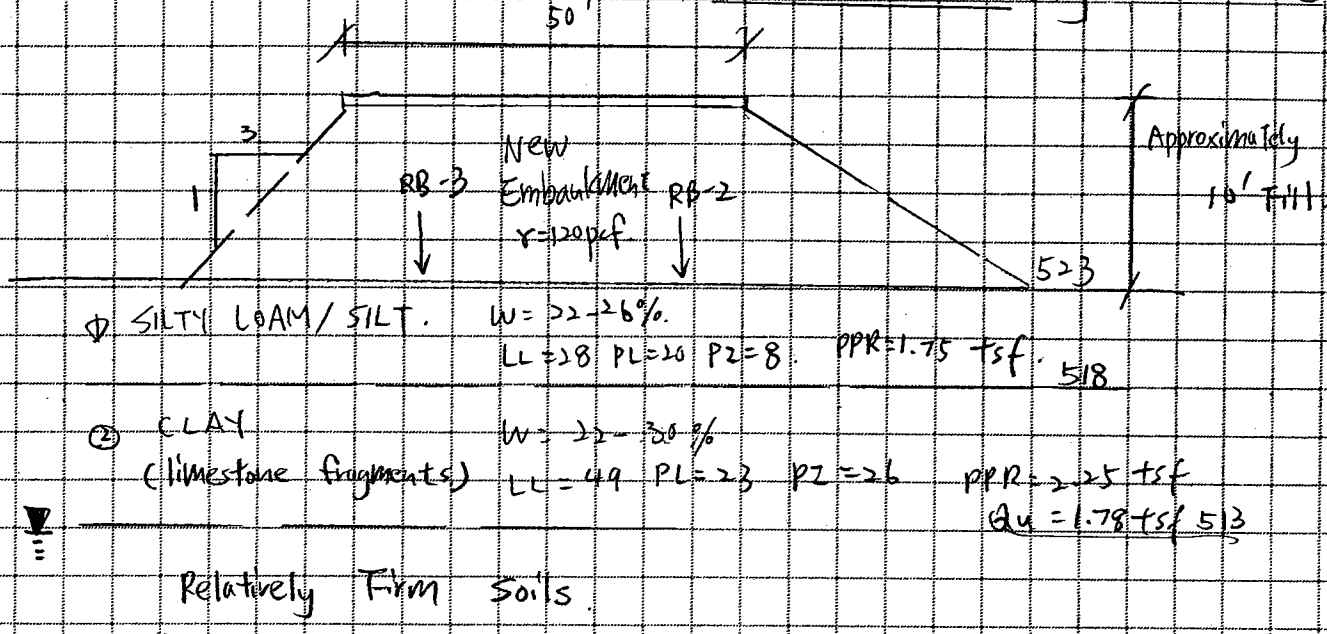 50'
3
1
New
Embankment
γ=120pcf.
RB-3
RB-2
Approximately
10' Fill
523
① SILTY LOAM/SILT. W= 22-26%.
LL=28 PL=20 PI=8. PPR=1.75 tsf.
518
② CLAY W= 22-30%
(limestone fragments) LL=49 PL=23 PI=26 PPR=2.25 tsf
Qu =1.78 tsf 513
Relatively Firm Soils.